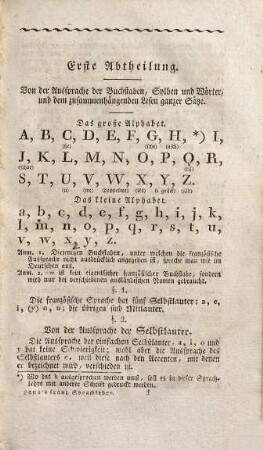 Erste Abtheilung.
Von der Aussprache der Buchstaben, Sylben und Wörter,
und dem zusammenhängenden Lesen ganzer Sätze.
Das große Alphabet.
A, B, C, D, E, F, G, H, *) I,
J, K, L, M, N, O, P, Q, R,
S, T, U, V, W, X, Y, Z.
Das kleine Alphabet.
a, b, c, d, e, f, g, h, i, j, k,
l, m, n, o, p, q, r, s, t, u,
v, w, x, y, z.
Anm. 1. Diejenigen Buchstaben, unter welchen die französische
Aussprache nicht ausdrücklich angegeben ist, spreche man wie im
Deutschen aus.
Anm. 2. w ist kein eigentlicher französischer Buchstabe, sondern
wird nur bei verschiedenen ausländischen Namen gebraucht.
§. 1.
Die französische Sprache hat fünf Selbstlauter: a, e,
i, (y) o, u; die übrigen sind Mitlauter.
§. 2.
Von der Aussprache der Selbstlauter.
Die Aussprache der einfachen Selbstlauter, a, i, o und
y hat keine Schwierigkeit; wohl aber die Aussprache des
Selbstlauters e, weil diese nach den Accenten, mit denen
er bezeichnet wird, verschieden ist.
*) Wo das h ausgesprochen werden muß, soll es in dieser Sprach-
lehre mit anderer Schrift gedruckt werden.
franz. Sprachlehre. 1